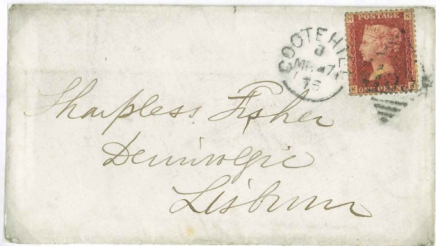 COOTEHILL
MR 17
75
POSTAGE
ONE PENNY
Sharpless Fisher
Lisburn